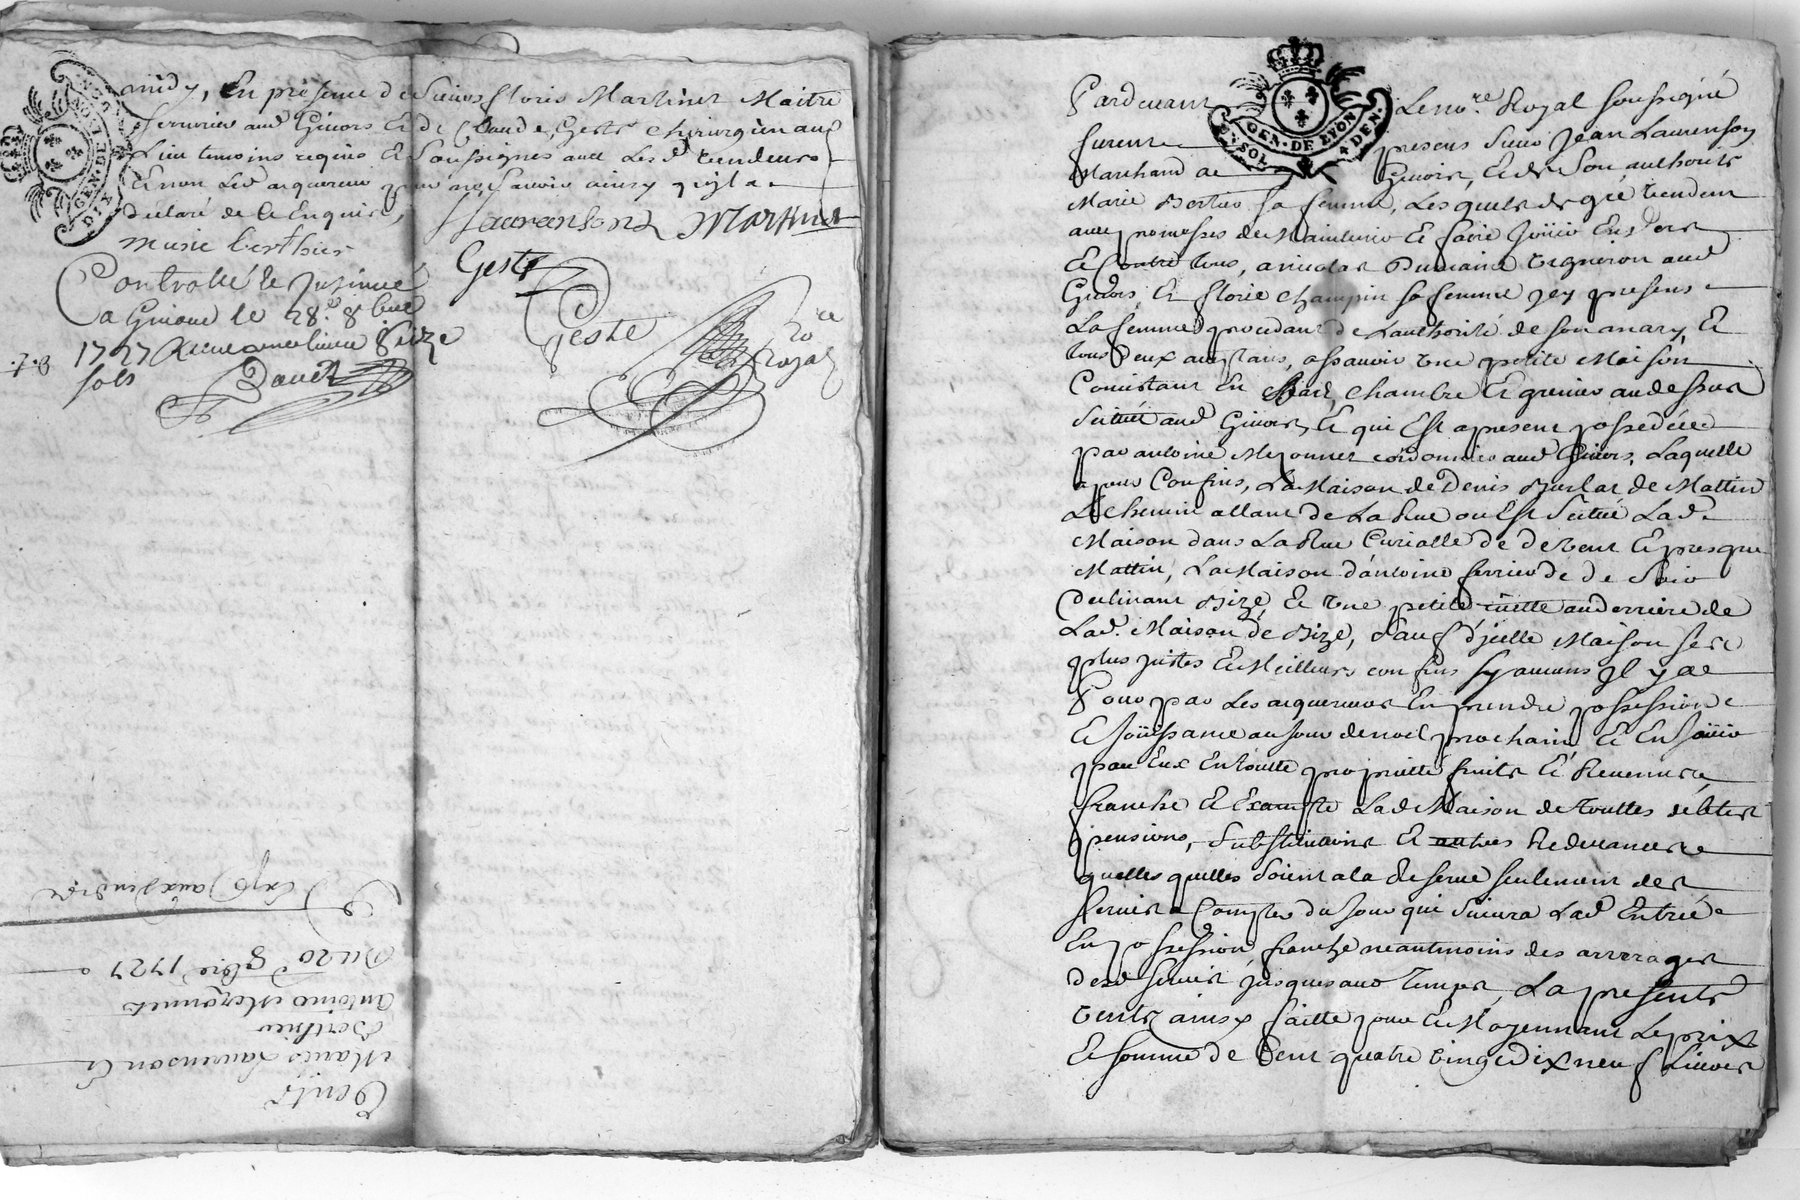 midy, En présence de Sieurs floris Martinet Maitre
serrurier aud Givors Et de Claude Geste chirurgien aud
Lieu temoins requis Et Soussignes avec Les d. vendeurs
Et non Les acquereurs pour ne sçavoir ainsy qu'yl a
declaré de ce Enquis,
Lauranson Martinet
Marie berthier
Geste
Controllé et Insinué
a Givors le 28e 8bre
1727
sols
Geste
No.re
Royal
David
GEN. DE LYON
Vente
Marie Laurenson Et
Berthier
Antoine Mezonnet
Du 20e 8bre 1727
Pardevant Le no.re Royal soussigné
furent presens Sieur Jean Laurenson
Marchand a Givors, Et de son authorité
Marie Bertier sa femme, Lesquels de gré vendent
avec promesses de Maintenir Et faire Jouir Envers
Et Contre tous, a nicolas Dumaine vigneron aud
Givors, Et florie Champin sa femme jcy presens
La femme procedant de L'authorité de son mary Et
tous deux acceptans, assavoir une petite Maison
Consistant En Chambre Et grenier au dessus
Scituée aud Givors, Et qui Est apresent possedée
par antoine Mezonnet cordonnier aud Givors, Laquelle
a pour Confins, La Maison de Denis de Mattin
Le chemin allant de La Rue ou Est Scitué Lad.
Maison dans La Rue Curialle de de vent Et presque
Mattin, La Maison d'antoine ferrier de de Soir
declinant Bize, Et une petite au derriere de
Lad. Maison de Bize, Sauf d'jcelle Maison ses
plus justes Et Meilleurs confins sy aucuns Jl y a
Pour par Les acquereurs En prendre possession
Et Joüissance au Jour de noel prochain Et En Joüir
par Eux En toutte proprietté fruits Et Revenus
franche Et Exempte Lad Maison de touttes debtes
pensions, Substitutions Et autres Redevances
quelles quelles soient a la Reserve seulement des
servis a Compter du Jour qui suivra Lad Entrée
En possession, franche neantmoins des arrerages
desd servis jusques aud temps, La presente
vente ainsy faitte pour Et Moyennant Le prix
Et somme de Cent quatre vingt dix neuf Livres
GEN. DE LYON
SOL
4 DEN.